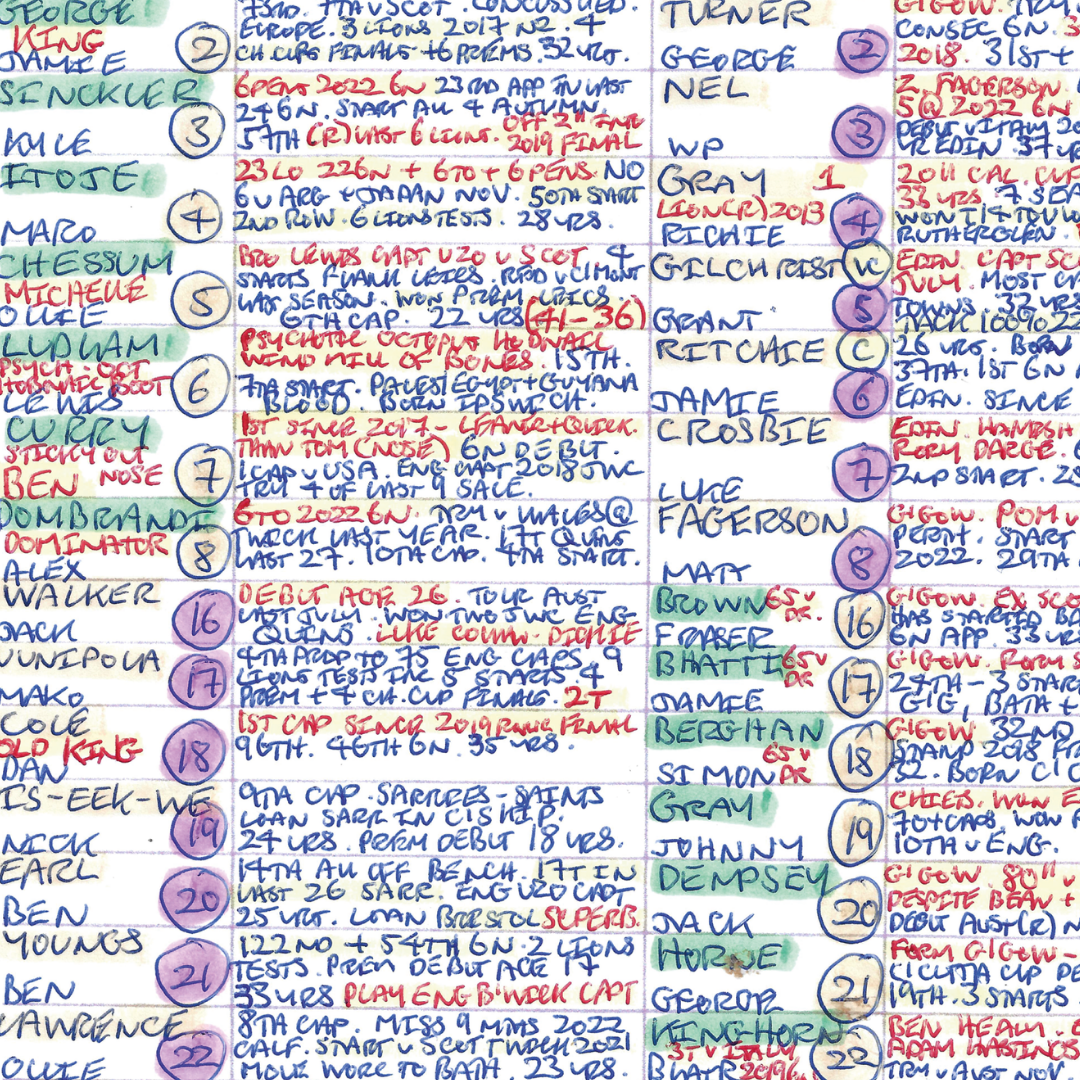 GEORGE
KING
JAMIE
2
EUROPE. 3 LIONS 2017 NZ. 4
CH.CUPS FINALS +6 PREMS. 32 YRS.
TURNER
GEORGE
2
GIGOW. TRY
CONSEC 6N. 3
2018. 31ST +
SINCKLER
KYLE
3
6 PENS 2022 6N 23RD APP IN LAST
24 6N. START ALL 4 AUTUMN.
57TH (R) LAST 6 LIONS. OFF 2" IND
2019 FINAL
NEL
WP
3
Z. FAGERSON.
5 @ 2022 6N
DEBUT V ITALY 20
YR EDIN. 37 YR
ITOJE
MARO
4
23 LO 22 6N + 6 TO + 6 PENS. NO
6 V ARG + JAPAN NOV. 50TH START
2ND ROW. 6 LIONS TESTS. 28 YRS.
GRAY 1
LION(R) 2013
RICHIE
4
2011 CAL. CUP
33 YRS. 7 SEA
WON 1 17 TOU
RUTHERGLEN.
CHESSUM
MICHELLE
OLLIE
5
BRO LEWIS CAPT U20 V SCOT 4
STARTS FLANK LEICS. RED V CLMONT
LAST SEASON. WON PREM LEICS.
6TH CAP. 22 YRS (41-36)
GILCHRIST VC
GRANT
5
EDIN. CAPT SC
JULY. MOST C
TOWNS. 32 YRS
TACK 100% 22
LUDLAM
PSYCH. OCT
HOBNAIL BOOT
LEWIS
6
PSYCHOTIC OCTOPUS HOBNAIL
WIND MILL OF BONES. 15TH.
7TH START. PALES/EGYPT+GUYANA
BLOOD. BORN IPSWICH.
RITCHIE C
JAMIE
6
26 YRS. BORN
37TH. 1ST 6N
EDIN. SINCE
CURRY
STICKY OUT
BEN NOSE
7
1ST SINCE 2017 - LEANER+QUICK.
THAN TOM (NOSE) 6N DEBUT.
1 CAP V USA. ENG CAPT 2018 JWC
TRY 4 OF LAST 9 SALE.
CROSBIE
LUKE
7
EDIN. HAMISH
RORY DARGE.
2ND START. 25
DOMBRANDT
DOMINATOR
ALEX
8
6 TO 2022 6N. TRY V WALES @
TWICK LAST YEAR. 17T QUINS
LAST 27. 10TH CAP. 4TH START.
FAGERSON
MATT
8
GIGOW. POM V
PERTH. START
2022. 29TH
WALKER
JACK
16
DEBUT AGE 26. TOUR AUST
LAST JULY. WON TWO JWC ENG
QUINS. LUKE COWW-DICKIE
BROWN 65 V
DR.
FRASER
16
GIGOW. EX SCO
HAS STARTED
6N APP. 33 YRS
VUNIPOLA
MAKO
17
4TH PROP TO 75 ENG CAPS. 9
LIONS TESTS INC 5 STARTS. 4
PREM + 4 CH.CUP FINALS. 2T
BHATTI 65 V
DR
JAMIE
17
GIGOW. RORY S
27TH - 3 START
GIG, BATH +
COLE
OLD KING
DAN
18
1ST CAP SINCE 2019 RWC FINAL
96TH. 46TH 6N. 35 YRS.
BERGHAN
65 V
SIMON DR
18
GIGOW 32ND
STAND 2018 FR
32. BORN C'C
IS-EEK-WE
NICK
19
9TH CAP. SARRIES-SAINTS
LOAN SARR IN C'SHIP.
24 YRS. PREM DEBUT 18 YRS.
GRAY
JOHNNY
19
CHIEFS. WON E
70+CAPS. WON
10TH V ENG.
EARL
BEN
20
14TH ALL OFF BENCH. 17T IN
LAST 26 SARR. ENG U20 CAPT
25 YRS. LOAN BRISTOL SUPERB.
DEMPSEY
JACK
20
GIGOW. 80" V
DESPITE BEAN +
DEBUT AUST(R) N
YOUNGS
BEN
21
122ND + 54TH 6N. 2 LIONS
TESTS. PREM DEBUT AGE 17
33 YRS PLAY ENG B'WICK CAPT
HORNE
GEORGE
21
FORM GIGOW -
C'CUTTA CUP DE
19TH. 3 STARTS
LAWRENCE
OLLIE
22
8TH CAP. MISS 9 MTHS 2022
CALF. START V SCOT TWICK 2021
MOVE WORC TO BATH. 23 YRS.
KINGHORN
3T V ITALY
BLAIR 2019 6N
22
BEN HEALY.
ADAM HASTINGS
TRY V AUST NOV.